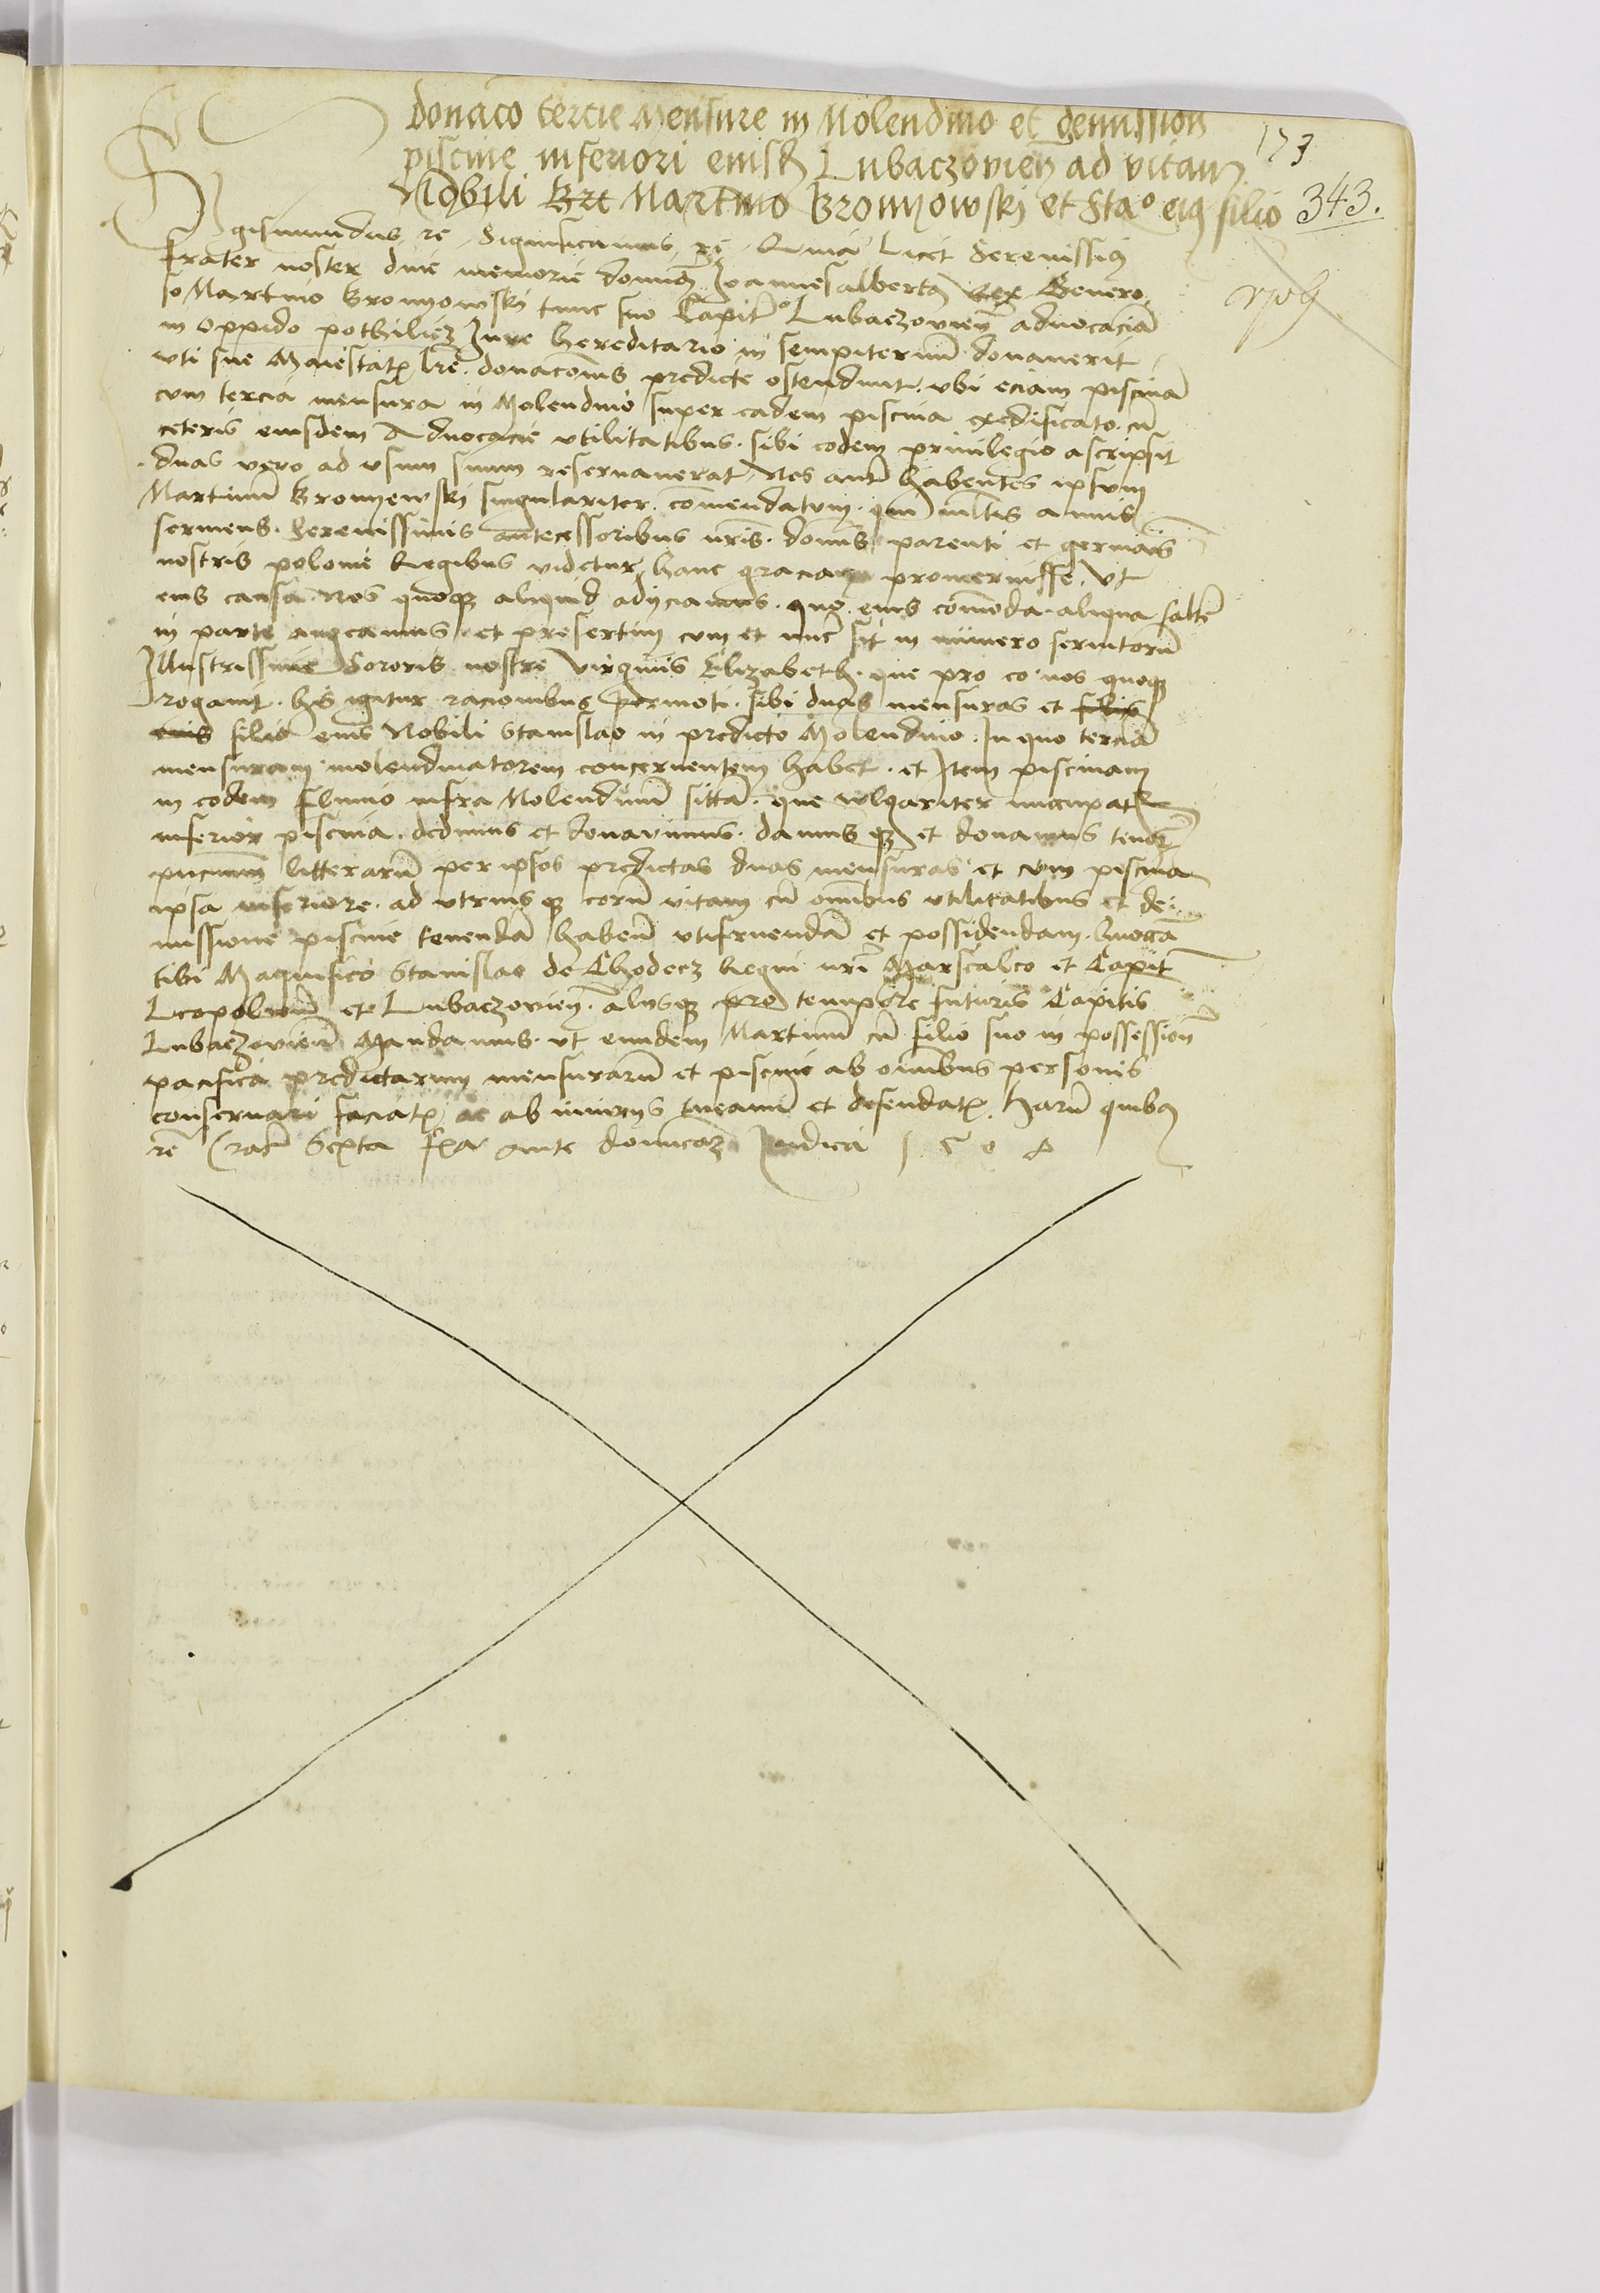 Donaco tercie Mensure in Molendino et demission
173
piscine inferiori eiusd Lubaczovien ad vitam
Nobili Bre Martino Bromyowskj et Stao eius filio
343.
Sigismundus re Significamus re Quia licet Serenissius
frater noster dive memorie domnus Joannesalbertus rex Genero
so Martino Bromyowskj tunc suo Capito Lubaczovien advocaciam
in Oppido pothilicz Jure hereditario in sempiternum donaverit
uti sue Maiestatis lre donaconis predicte ostendunt ubi eciam piscina
cum tercia mensura in Molendino super eadem piscina exedificato cu
ceteris eiusdem Advocacie utilitatibus sibi eodem privilegio ascripsit
duas vero ad usum suum reservaverat Nos aut habentes ipsum
Martinum Bromyewskj singulariter comendatum qui multis annis
serviens Serenissimis antecessoribus nris domnis parenti et germanis
nostris polonie Regibus videtur hanc graciam promervisse ut
eius causa Nos quoque aliquid adyciamus quo eius comoda aliqua saltem
in parte augeamus et presertim cum et nunc sit in numero servitorum
Illustrissime Sororis nostre virginis Elizabeth que pro eo nos quoque
rogavit his igitur racionibus permoti sibi duas mensuras et filio
eius filio eius Nobili Stanislao in predicto Molendino In quo tercia
mensuram molendinatorem concernentem habet et Item piscinam
in eodem fluvio infra Molendinum sittam que wlgariter nuncupatur
inferior piscina dedimus et donavimus damusque et donamus tenore
pncium litterarum per ipsos predictas duas mensuras et cum piscina
ipsa inferiore ad utriusque eorum vitam cu omnibus utilitatibus et de
missione piscine tenendam habend utifruendam et possidendam Quocca
tibi Magnifico Stanislao de Chodecz Regni nri Marscalco et Capit
Leopolien et Lubaczovien alysque pro tempore futuris Capitis
Lubaczovien Mandamus ut eundem Martinum cu filio suo in possession
pacifica predictarum mensurarum et piscine ab omnibus personis
conservari faciatis ac ab iniurys tueamini et defendatis harum quibus
re Crac Sexta fxa ante dominicam Judica